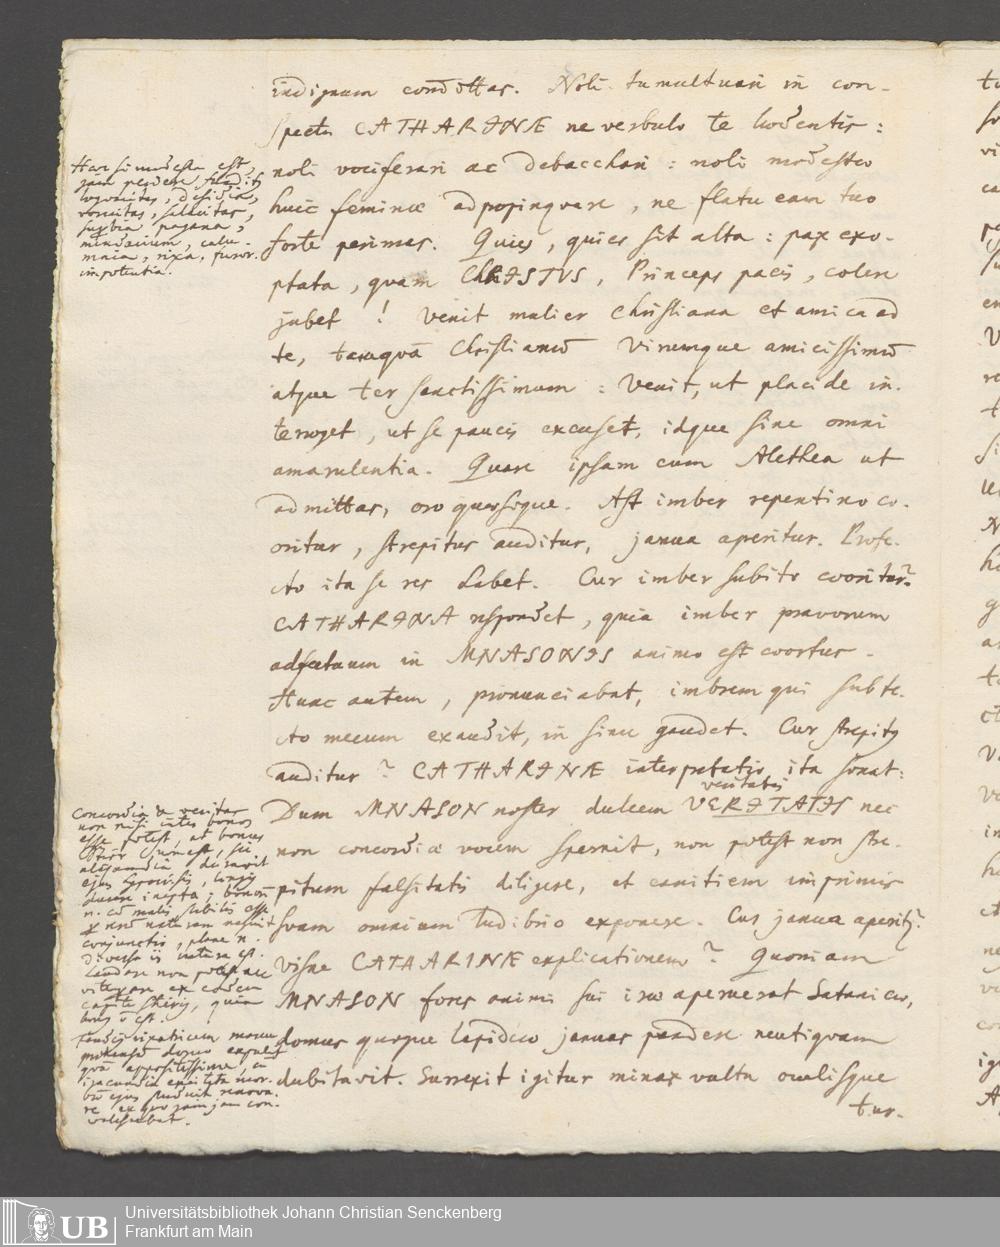 indignum committas. Noli tumultuari in con-
spectu CATHARINÆ ne verbulo te
noli vociferari ac debacchari : noli
huic feminæ adpropinquare, ne flatu eam tuo
forte perimas. Quies, quies sit alta : pax exo-
ptata, quam ChRISTUS, Princeps pacis, colere
jubet ! Venit mulier Christiana et amica ad
te, tamquā Christianū Virumque amicissimū
atque ter sanctissimum : Venit, ut placide in-
terroget, ut se paucis excuset, idque sine omni
amarulentia. Quare ipsam cum Alethea ut
admittas, oro quæsoque. Ast imber repentino co-
oritur, strepitus auditur, janua aperitur. Profe-
cto ita se res habet. Cur imber subito cooritur?
CATHARINA respondet, quia imber pravorum
adfectuum in MNASONIS animo est coortus.
Hunc autem, pronunciabat, imbrem qui sub te-
cto mecum exaudit, in sinu gaudet. Cur strepitus
auditur ? CATHARINÆ interpretatio ita sonat:
veritatis
Dum MNASON noster dulcem VERITATIS nec
non concordiæ vocem spernit, non potest non stre-
pitum falsitatis diligere, et canitiem imprimis
suam omnium ludibrio exponere. Cur janua aperitur?
visne CATHARINÆ explicationem ? Quoniam
MNASON fores animi sui iræ aperuerat Satanicæ,
domus quoque lapideæ januas pandere neutiquam
dubitavit. Surrexit igitur minax vultu oculisque
tur-
Hæc si modesta est,
jam perdere
loquacitas, desidia,
voracitas, salacitas,
superbia pagana,
mendacium, calu-
mnia, rixa, furor.
impotentia.
Concordia & veritas
non nisi inter bonos
esse potest, at bonus
aliquamdiu duravit
ducere inepta ; bonorū
n. cū malis stabilis esse
naturam
conjunctio, plane n.
diversa iis natura est.
Laudare non potest nec
vituperare ex eodem
capite
est.
rixatricem
appositissime,
iracundia
ejus
re
valescebat.
Universitätsbibliothek Johann Christian Senckenberg
Frankfurt am Main
UB